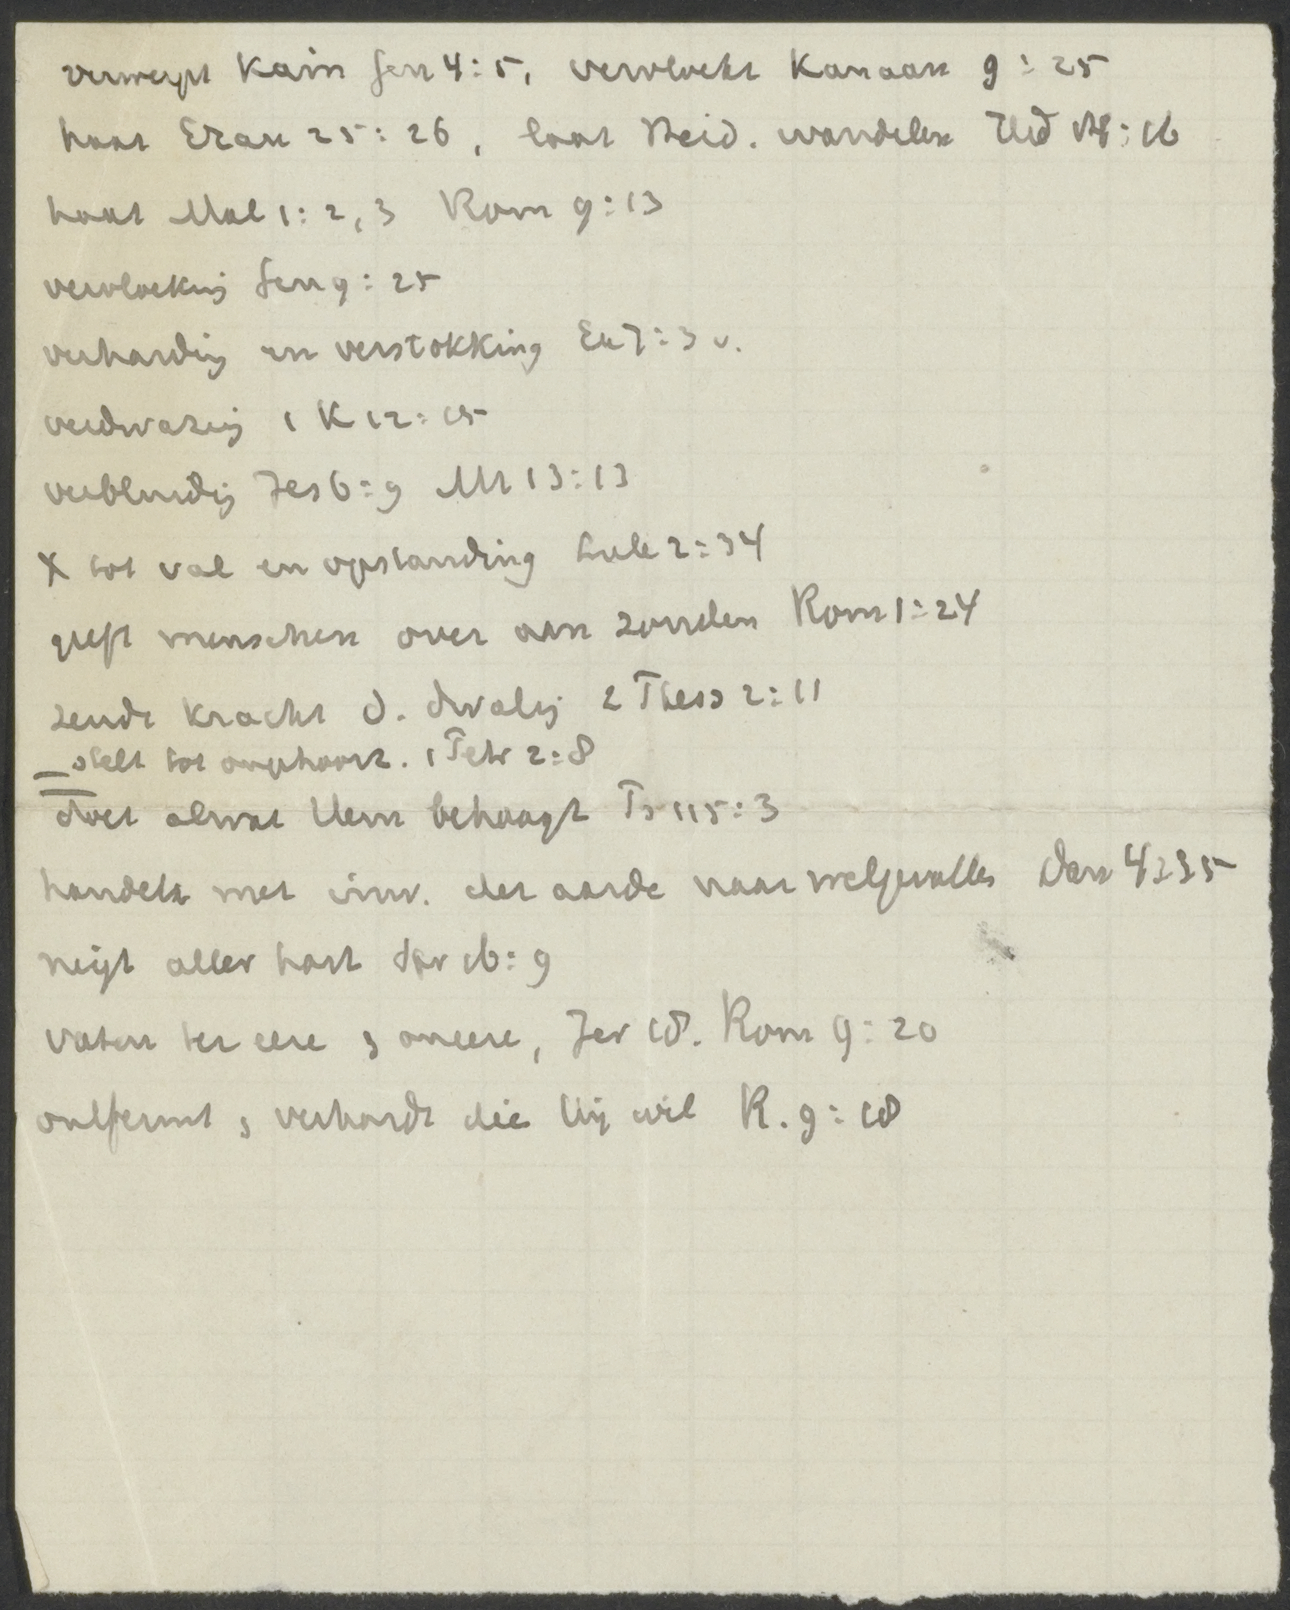 verwerpt Kain Gen 4:5, vervloekt Kanaan 9:25
haat Ezau 25:26, laat Heid. wandelen Hd 14:16
haat Mal 1:2,3 Rom 9:13
vervloeking Gen 9:25
verharding en verstokking Ex 7:3 v.
verdwazing 1 K 12:15
verblinding Jes 6:9 Mt 13:13
X tot val en opstanding Luk 2:34
geeft menschen over aan zonden Rom 1:24
zendt kracht d. dwaling 2 Thess 2:11
stelt tot ongehoorz. 1 Petr 2:8
doet alwat Hem behaagt Ps 115:3
handelt met inw. der aarde naar welgevallen Dan 4:35
neigt aller hart Spr 16:9
vaten ter eere & oneere, Jer 18. Rom 9:20
ontfermt & verhardt die Hij wil R. 9:18